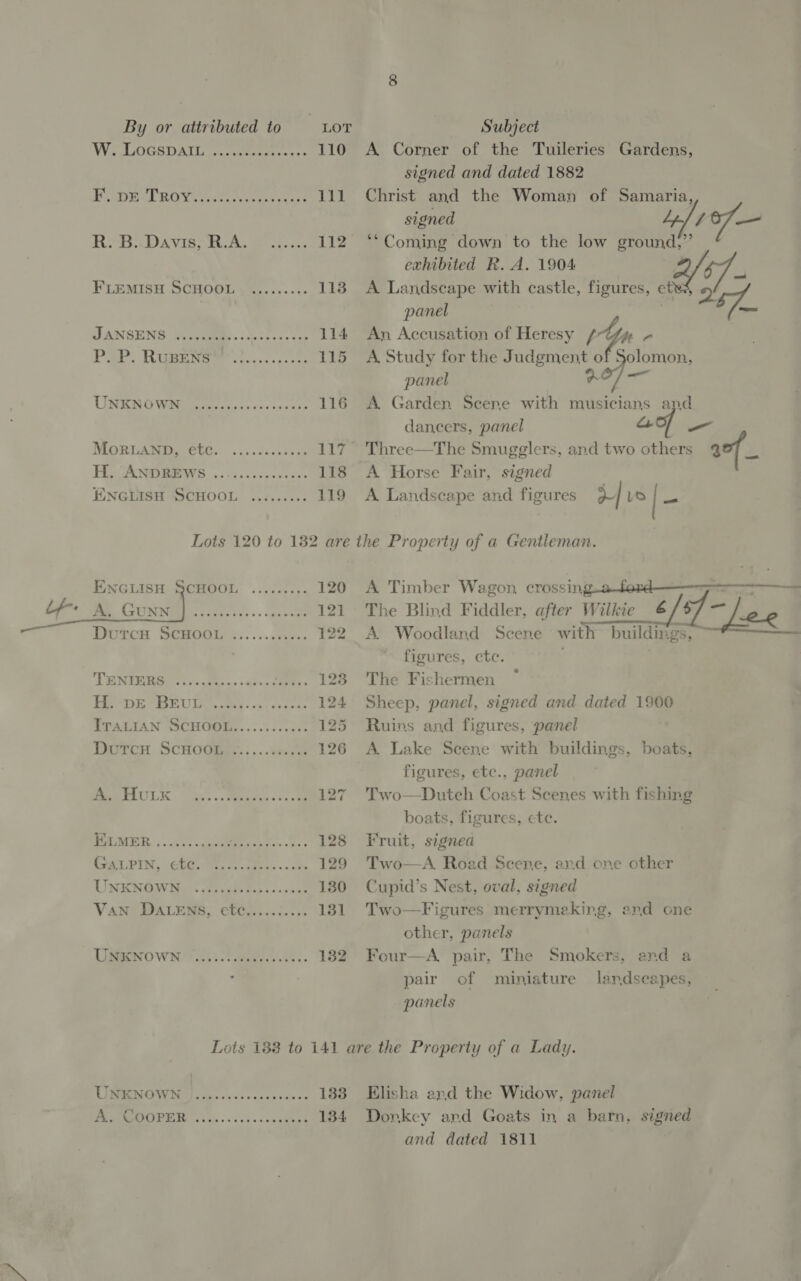 8
By or attributed to LOT Subject
W. LOGSDAIL ............... 110 A Corner of the Tuileries Gardens,
signed and dated 1882
F. DE TROY.................. 111 Christ and the Woman of Samaria,
signed
R. B. DAVIS, R.A. ...... 112 “Coming down to the low ground,”
exhibited R. A. 1904
FLEMISH SCHOOL ......... 113 A Landscape with castle, figures, etc.
panel
JANSENS ..................... 114 An Accusation of Heresy
P. P. RUBENS ............ 115 A Study for the Judgment of Solomon,
panel
UNKNOWN .................. 116 A Garden Scene with musicians and
dancers, panel
MORLAND, etc. ............ 117 Three—The Smugglers, and two others
H. ANDREWS ............... 118 A Horse Fair, signed
ENGLISH SCHOOL ......... 119 A Landscape and figures
Lots 120 to 132 are the Property of a Gentleman.
ENGLISH SCHOOL ......... 120 A Timber Wagon crossing a ford
A. GUNN .................. 121 The Blind Fiddler, after Wilkie 6/5/- Lee
DUTCH SCHOOL ............ 122 A Woodland Scene with buildings,
figures, etc.
TENIERS ..................... 123 The Fishermen
H. DE BEUL ............... 124 Sheep, panel, signed and dated 1900
ITALIAN SCHOOL............ 125 Ruins and figures, panel
DUTCH SCHOOL............ 126 A Lake Scene with buildings, boats,
figures, etc., panel
A. HULK .................. 127 Two—Dutch Coast Scenes with fishing
boats, figures, etc.
ELMER ........................ 128 Fruit, signed
GALPIN, etc. ............... 129 Two—A Road Scene, and one other
UNKNOWN .................. 130 Cupid’s Nest, oval, signed
VAN DALENS, etc.......... 131 Two—Figures merrymaking, and one
other, panels
UNKNOWN .................. 132 Four—A pair, The Smokers, and a
pair of miniature landscapes,
panels
Lots 133 to 141 are the Property of a Lady.
UNKNOWN .................. 133 Elisha and the Widow, panel
A. COOPER .................. 134 Donkey and Goats in a barn, signed
and dated 1811